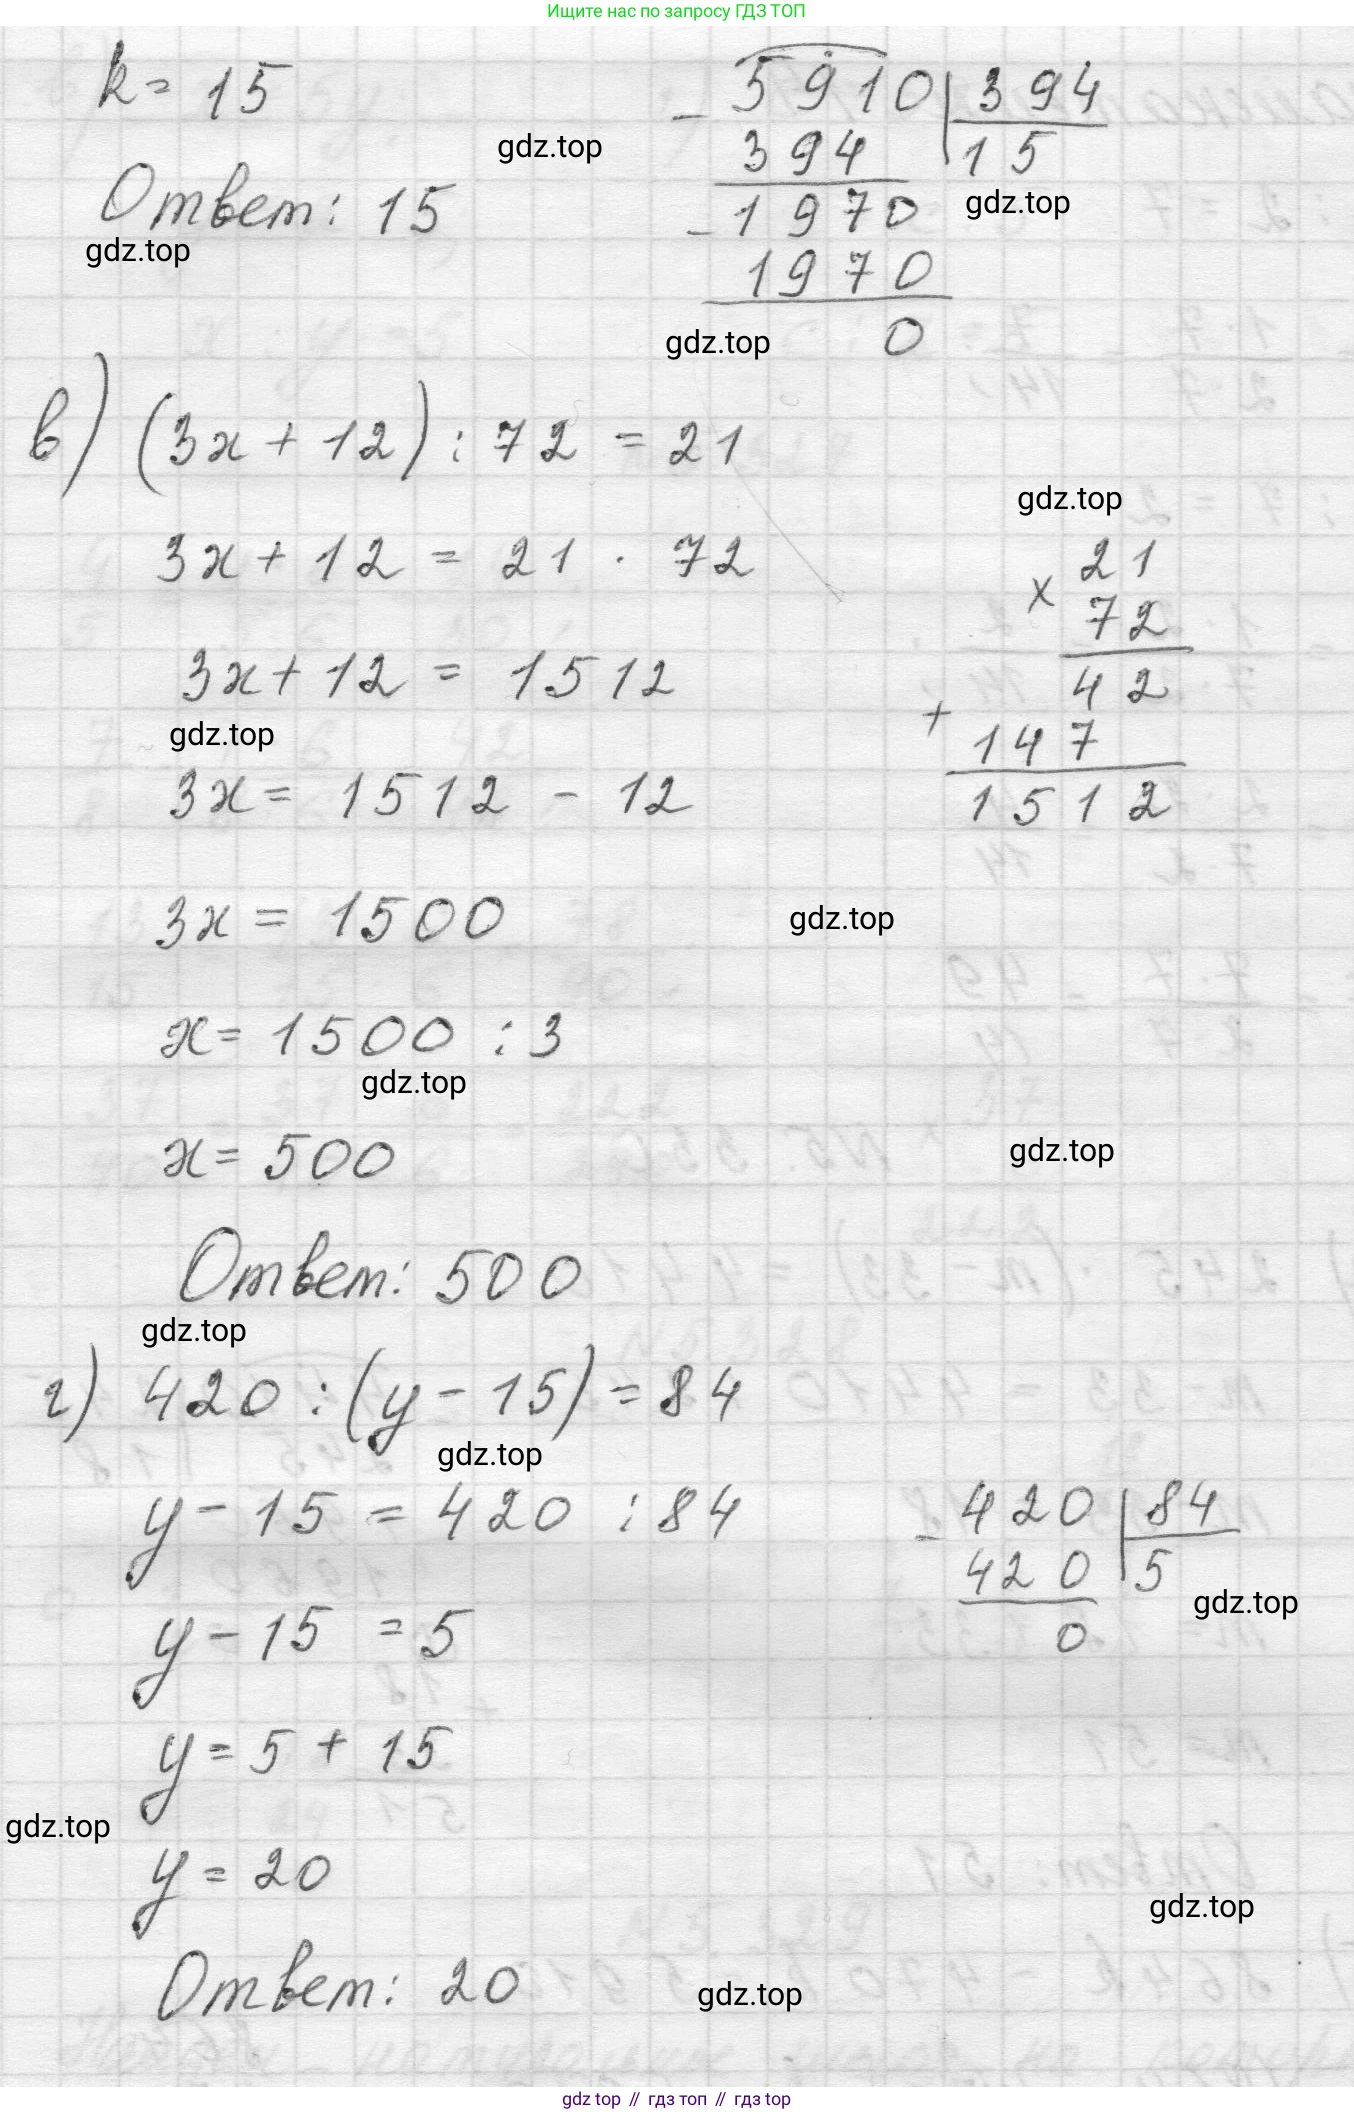 Ищите нас по запросу ГДЗ ТОП
k = 15
Ответ: 15
- 5910 | 394
394 | 15
- 1970
1970
0
gdz.top
gdz.top
gdz.top
gdz.top
в) (3x + 12) : 72 = 21
3x + 12 = 21 · 72
3x + 12 = 1512
gdz.top
3x = 1512 - 12
3x = 1500
x = 1500 : 3
gdz.top
x = 500
Ответ: 500
gdz.top
gdz.top
× 21
72
42
+ 147
1512
gdz.top
gdz.top
г) 420 : (y - 15) = 84
gdz.top
y - 15 = 420 : 84
y - 15 = 5
y = 5 + 15
gdz.top
y = 20
Ответ: 20
- 420 | 84
420 | 5
0
gdz.top
gdz.top
gdz.top
gdz top // гдз топ // гдз top